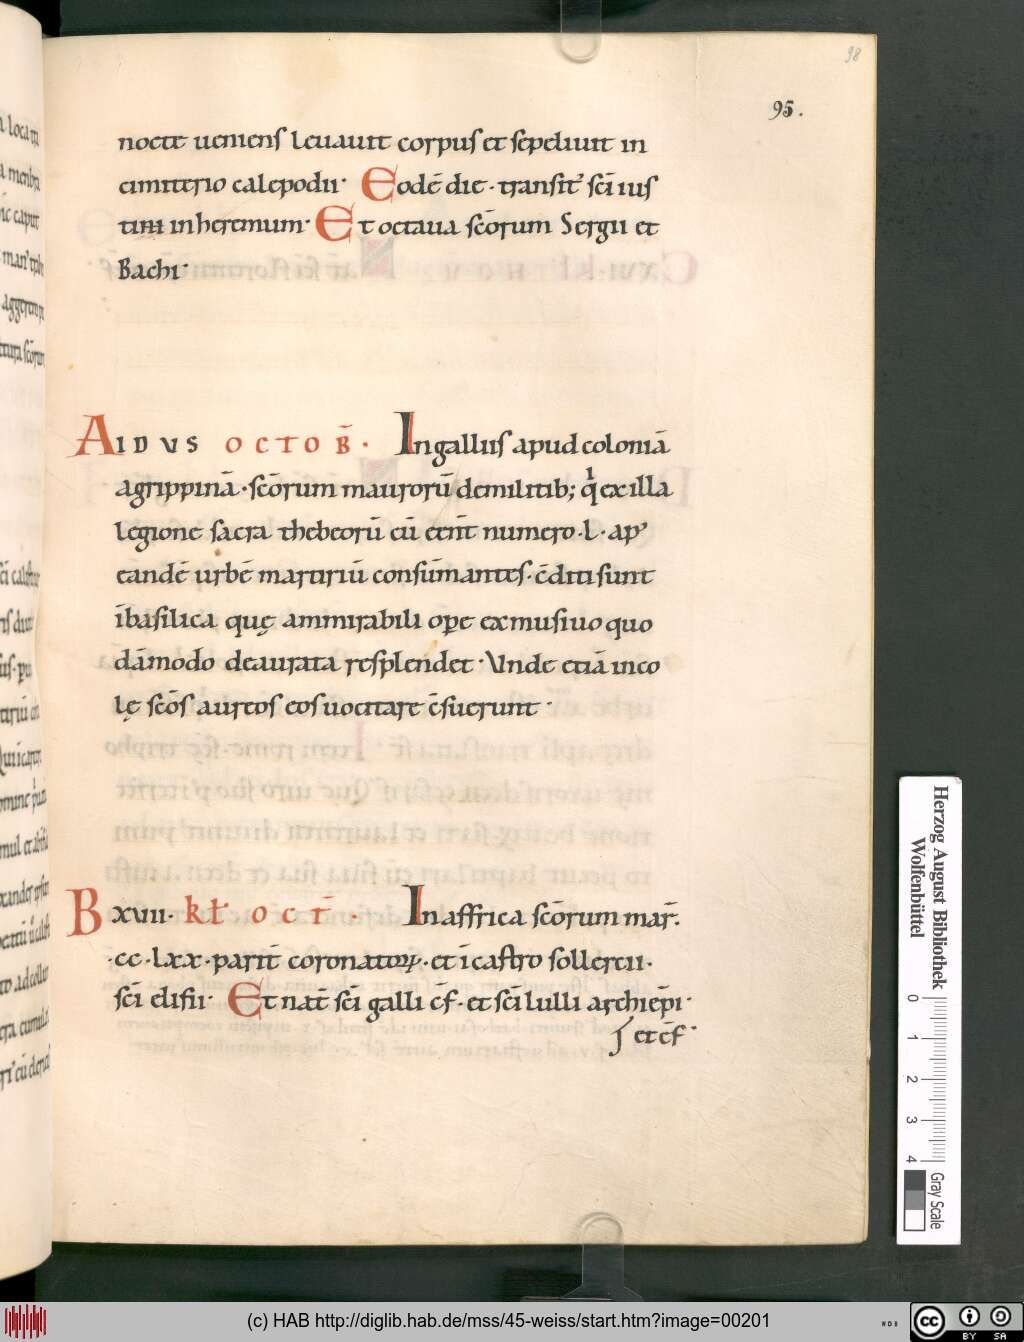 98
95.
nocte ueniens leuauit corpus et sepeliuit in
cimiterio calepodii· Eodē die· transit' sc̄i ius
tini in heremum· Et octaua sc̄orum Sergii et
Bachi·
A IDVS OCTOB̄· In galliis apud coloniā
agrippinā· sc̄orum maurorū de militib; q̇ ex illa
legione sacra thebeorū cū eēnt numero ·L· ap'
eandē urbē martiriū consūmantes· c̄diti sunt
ībasilica quę ammirabili ope ex musiuo quo
dāmodo deaurata resplendet· Vnde etiā inco
lę sc̄os aureos eos uocitare c̄suerunt·
B XVII· kł OCT̄· In affrica sc̄orum mar̄.
·cc·lxx·parit̄ coronatoꝝ· et ī castro sollercii·
sc̄i elifii· Et nat̄ sc̄i galli c̄f· et sc̄i lulli archiep̄i·
et c̄f·
Herzog August Bibliothek
Wolfenbüttel
0 1 2 3 4
Gray Scale
(c) HAB http://diglib.hab.de/mss/45-weiss/start.htm?image=00201
cc BY SA